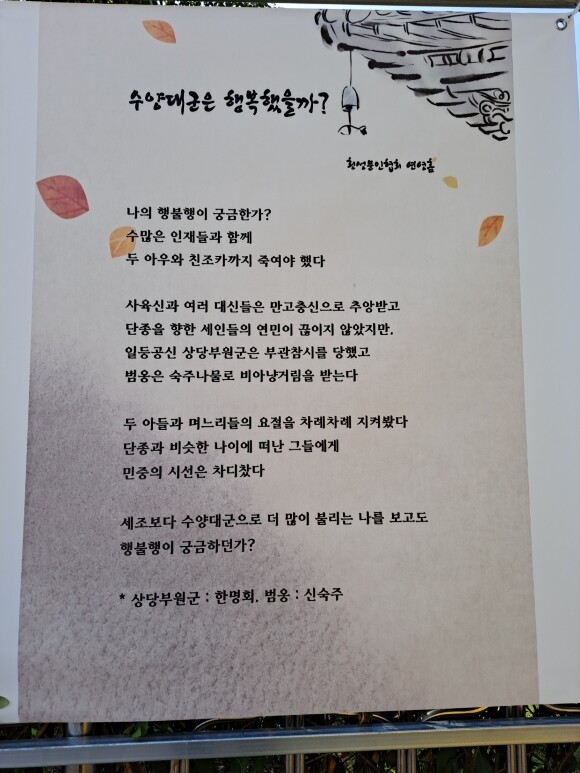 수양대군은 행복했을까?
횡성문인협회 연영흠
나의 행불행이 궁금한가?
수많은 인재들과 함께
두 아우와 친조카까지 죽여야 했다
사육신과 여러 대신들은 만고충신으로 추앙받고
단종을 향한 세인들의 연민이 끊이지 않았지만,
일등공신 상당부원군은 부관참시를 당했고
범옹은 숙주나물로 비아냥거림을 받는다
두 아들과 며느리들의 요절을 차례차례 지켜봤다
단종과 비슷한 나이에 떠난 그들에게
민중의 시선은 차디찼다
세조보다 수양대군으로 더 많이 불리는 나를 보고도
행불행이 궁금하던가?
* 상당부원군 : 한명회, 범옹 : 신숙주